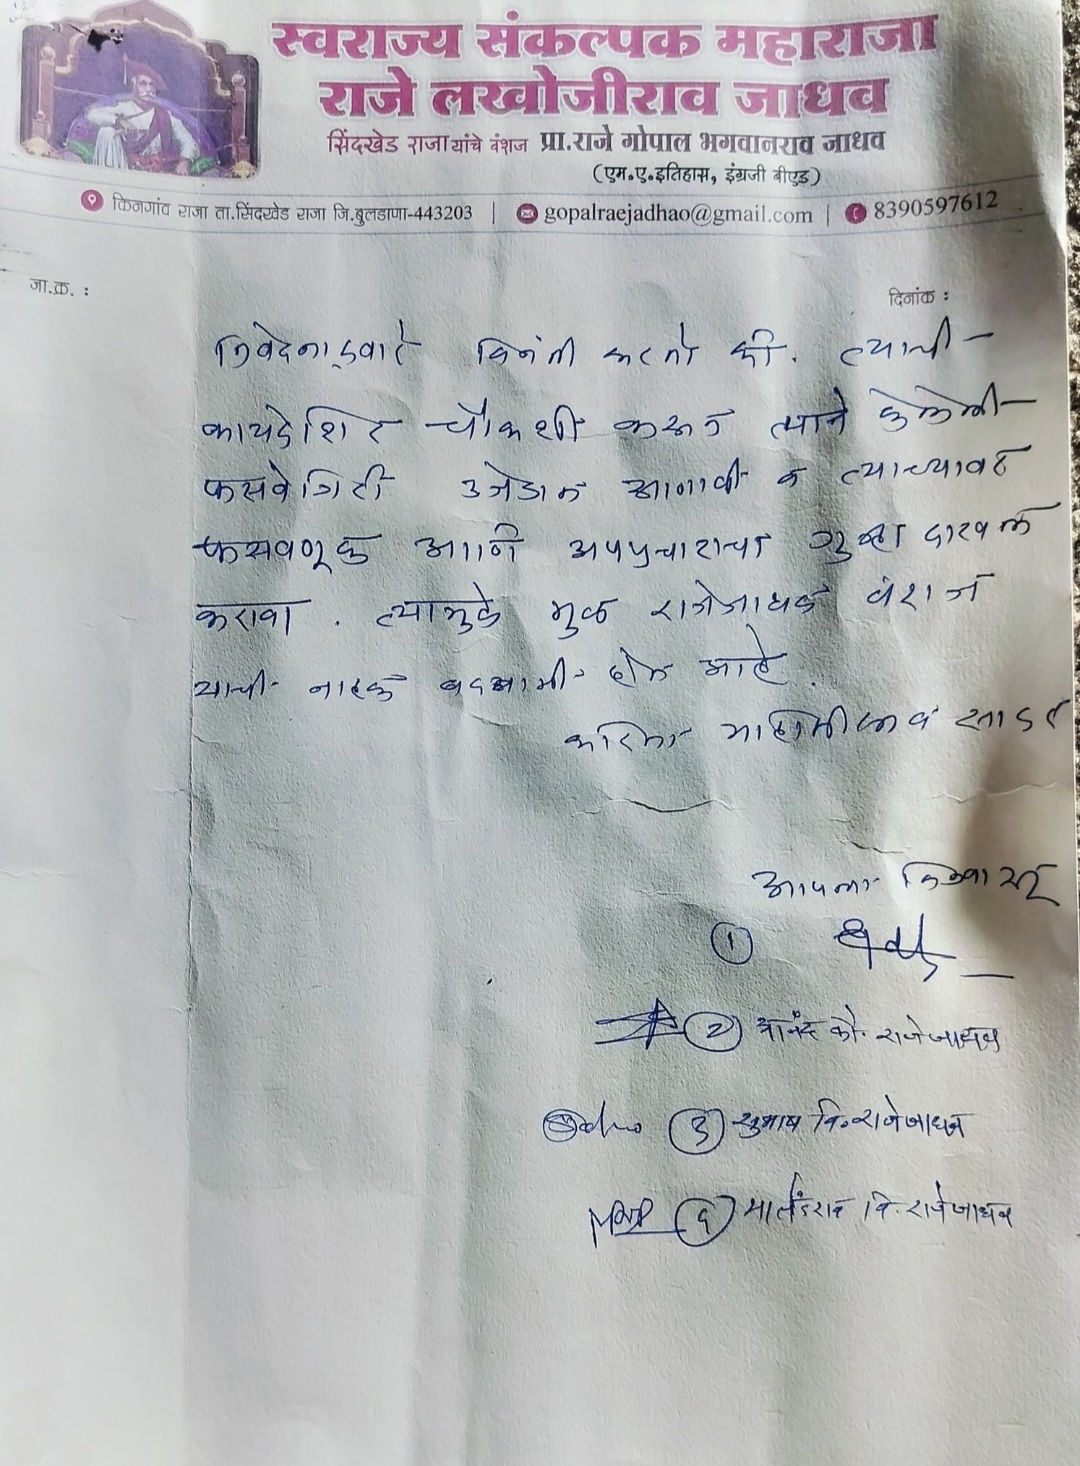 स्वराज्य संकल्पक महाराजा
राजे लखोजीराव जाधव
सिंदखेड राजा यांचे वंशज प्रा.राजे गोपाल भगवानराव जाधव
(एम.ए.इतिहास, इंग्रजी बीएड)
किनगांव राजा ता.सिंदखेड राजा जि.बुलडाणा-443203 | gopalraejadhao@gmail.com | 8390597612
जा.क्र. :
दिनांक :
निवेदनाद्वारे विनंती करतो की. त्याची
कायदेशिर चौकशी करून त्याने केलेली
फसवेगिरी उजेडात आणावी व त्याच्यावर
फसवणूक आणि अपप्रचाराचा गुन्हा दाखल
करावा . त्यामुळे मुळ राजेजाधव वंशज
यांची नाहक बदनामी होत आहे.
करिता माहितीस्तव सादर
आपला विश्वासू
१
२ आनंद कौ. राजेजाधव
३ सुभाष वि. राजेजाधव
मार्तंडराव वि. राजेजाधव